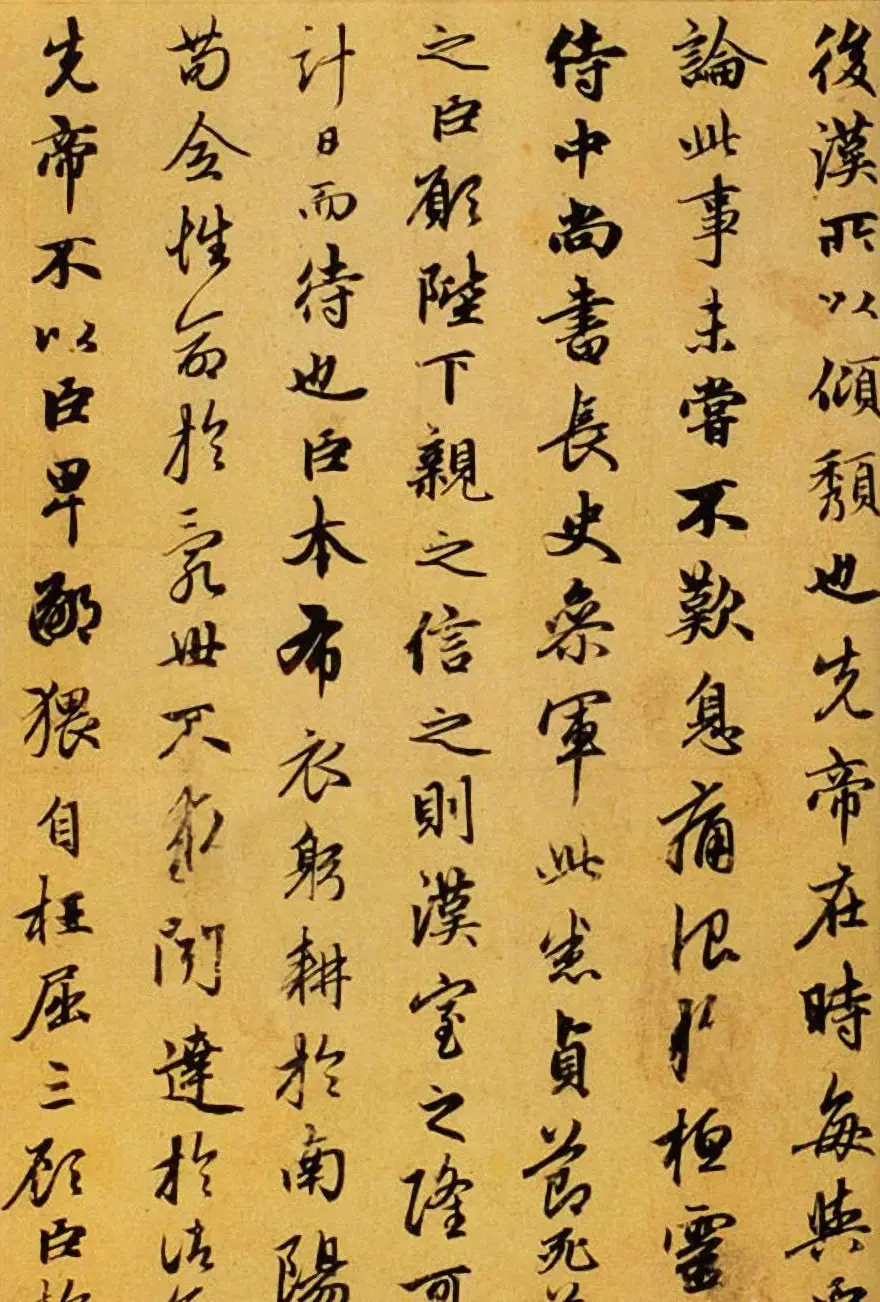 後漢所以傾頽也先帝在時每與
論此事未嘗不歎息痛恨於桓靈
侍中尚書長史參軍此悉貞節死
之臣願陛下親之信之則漢室之隆可
計日而待也臣本布衣躬耕於南陽
苟全性命於亂世不求聞達於諸
先帝不以臣卑鄙猥自枉屈三顧臣